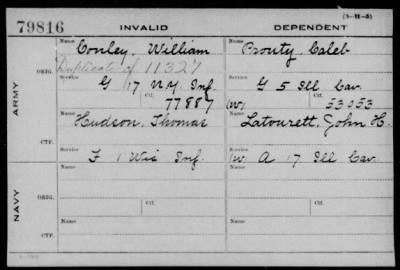 (3-H-5)
79816 INVALID DEPENDENT
Name Conley, William Name Prouty, Caleb
Duplicate of 11327
ORIG.
Service G 17 N.Y. Inf. Service G 5 Ill Cav.
ARMY
77887 Ctf. (W) 53053
Name Hudson, Thomas Name Latourett, John H.
CTF.
Service F 1 Wis Inf. (W) A 17 Ill Cav.
Name Name
ORIG.
Service Ctf. Service Ctf.
NAVY
Name Name
CTF.